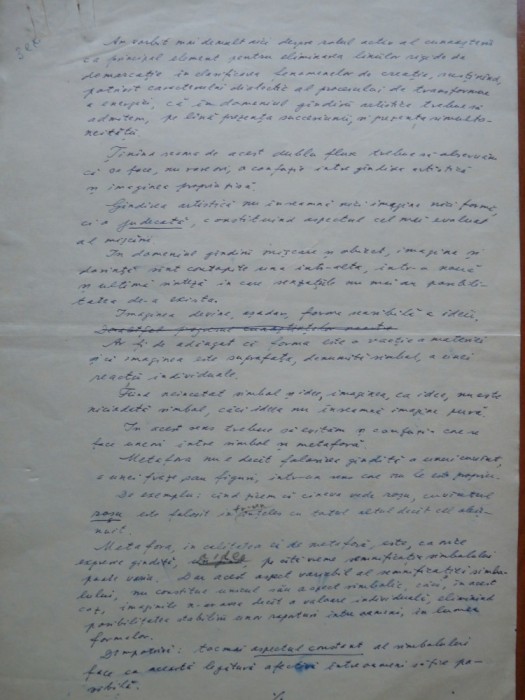 Am vorbit mai demult aici despre rolul activ al cunoașterii
ca principal element pentru eliminarea liniilor rigide de
demarcație în clasificarea fenomenelor de creație, susținînd,
potrivit caracterului dialectic al procesului de transformare
a energiei, că în domeniul gîndirii artistice trebue să
admitem, pe lîngă prezența succesiunii, și prezența simulta-
neității.
Ținînd seama de acest dublu flux trebue să observăm
că se face, nu rareori, o confuzie între gîndirea artistică
și imaginea propriu zisă.
Gîndirea artistică nu înseamnă nici imagine nici formă,
ci o judecată, constituind aspectul cel mai evoluat
al mișcării.
În domeniul gîndirii mișcare și obiect, imagine și
dorință sînt contopite una într-alta, într-o nouă
și ultimă sinteză în care senzațiile nu mai au posibili-
tatea de-a exista.
Imaginea devine, așadar, forma sensibilă a ideii,
Ar fi de adăugat că forma este o reacție a materiei
și că imaginea este suprafața, denumită simbol, a unei
reacții individuale.
Fiind neîncetat simbol și idee, imaginea, ca idee, nu este
niciodată simbol, căci ideea nu înseamnă imagine pură.
În acest sens trebue să evităm și confuzia care se
face uneori între simbol și metaforă.
Metafora nu e decît folosirea gîndită a unui cuvînt,
a unei fraze sau figuri, într-un sens care nu le este propriu.
De exemplu: cînd spunem că cineva vede roșu, cuvîntul
roșu este folosit în înțeles cu totul altul decît cel obiș-
nuit.
Metafora, în calitatea ei de metaforă, este, ca orice
expresie gîndită, pe cîtă vreme semnificația simbolului
poate varia. Dar acest aspect variabil al semnificației simbo-
lului, nu constitue unicul său aspect simbolic, căci, în acest
caz, imaginile n-ar avea decît o valoare individuală, eliminînd
posibilitatea stabilirii unor raporturi între oameni, în lumea
formelor.
Dimpotrivă: tocmai aspectul constant al simbolului
face ca această legătură afectivă între oameni să fie po-
sibilă.